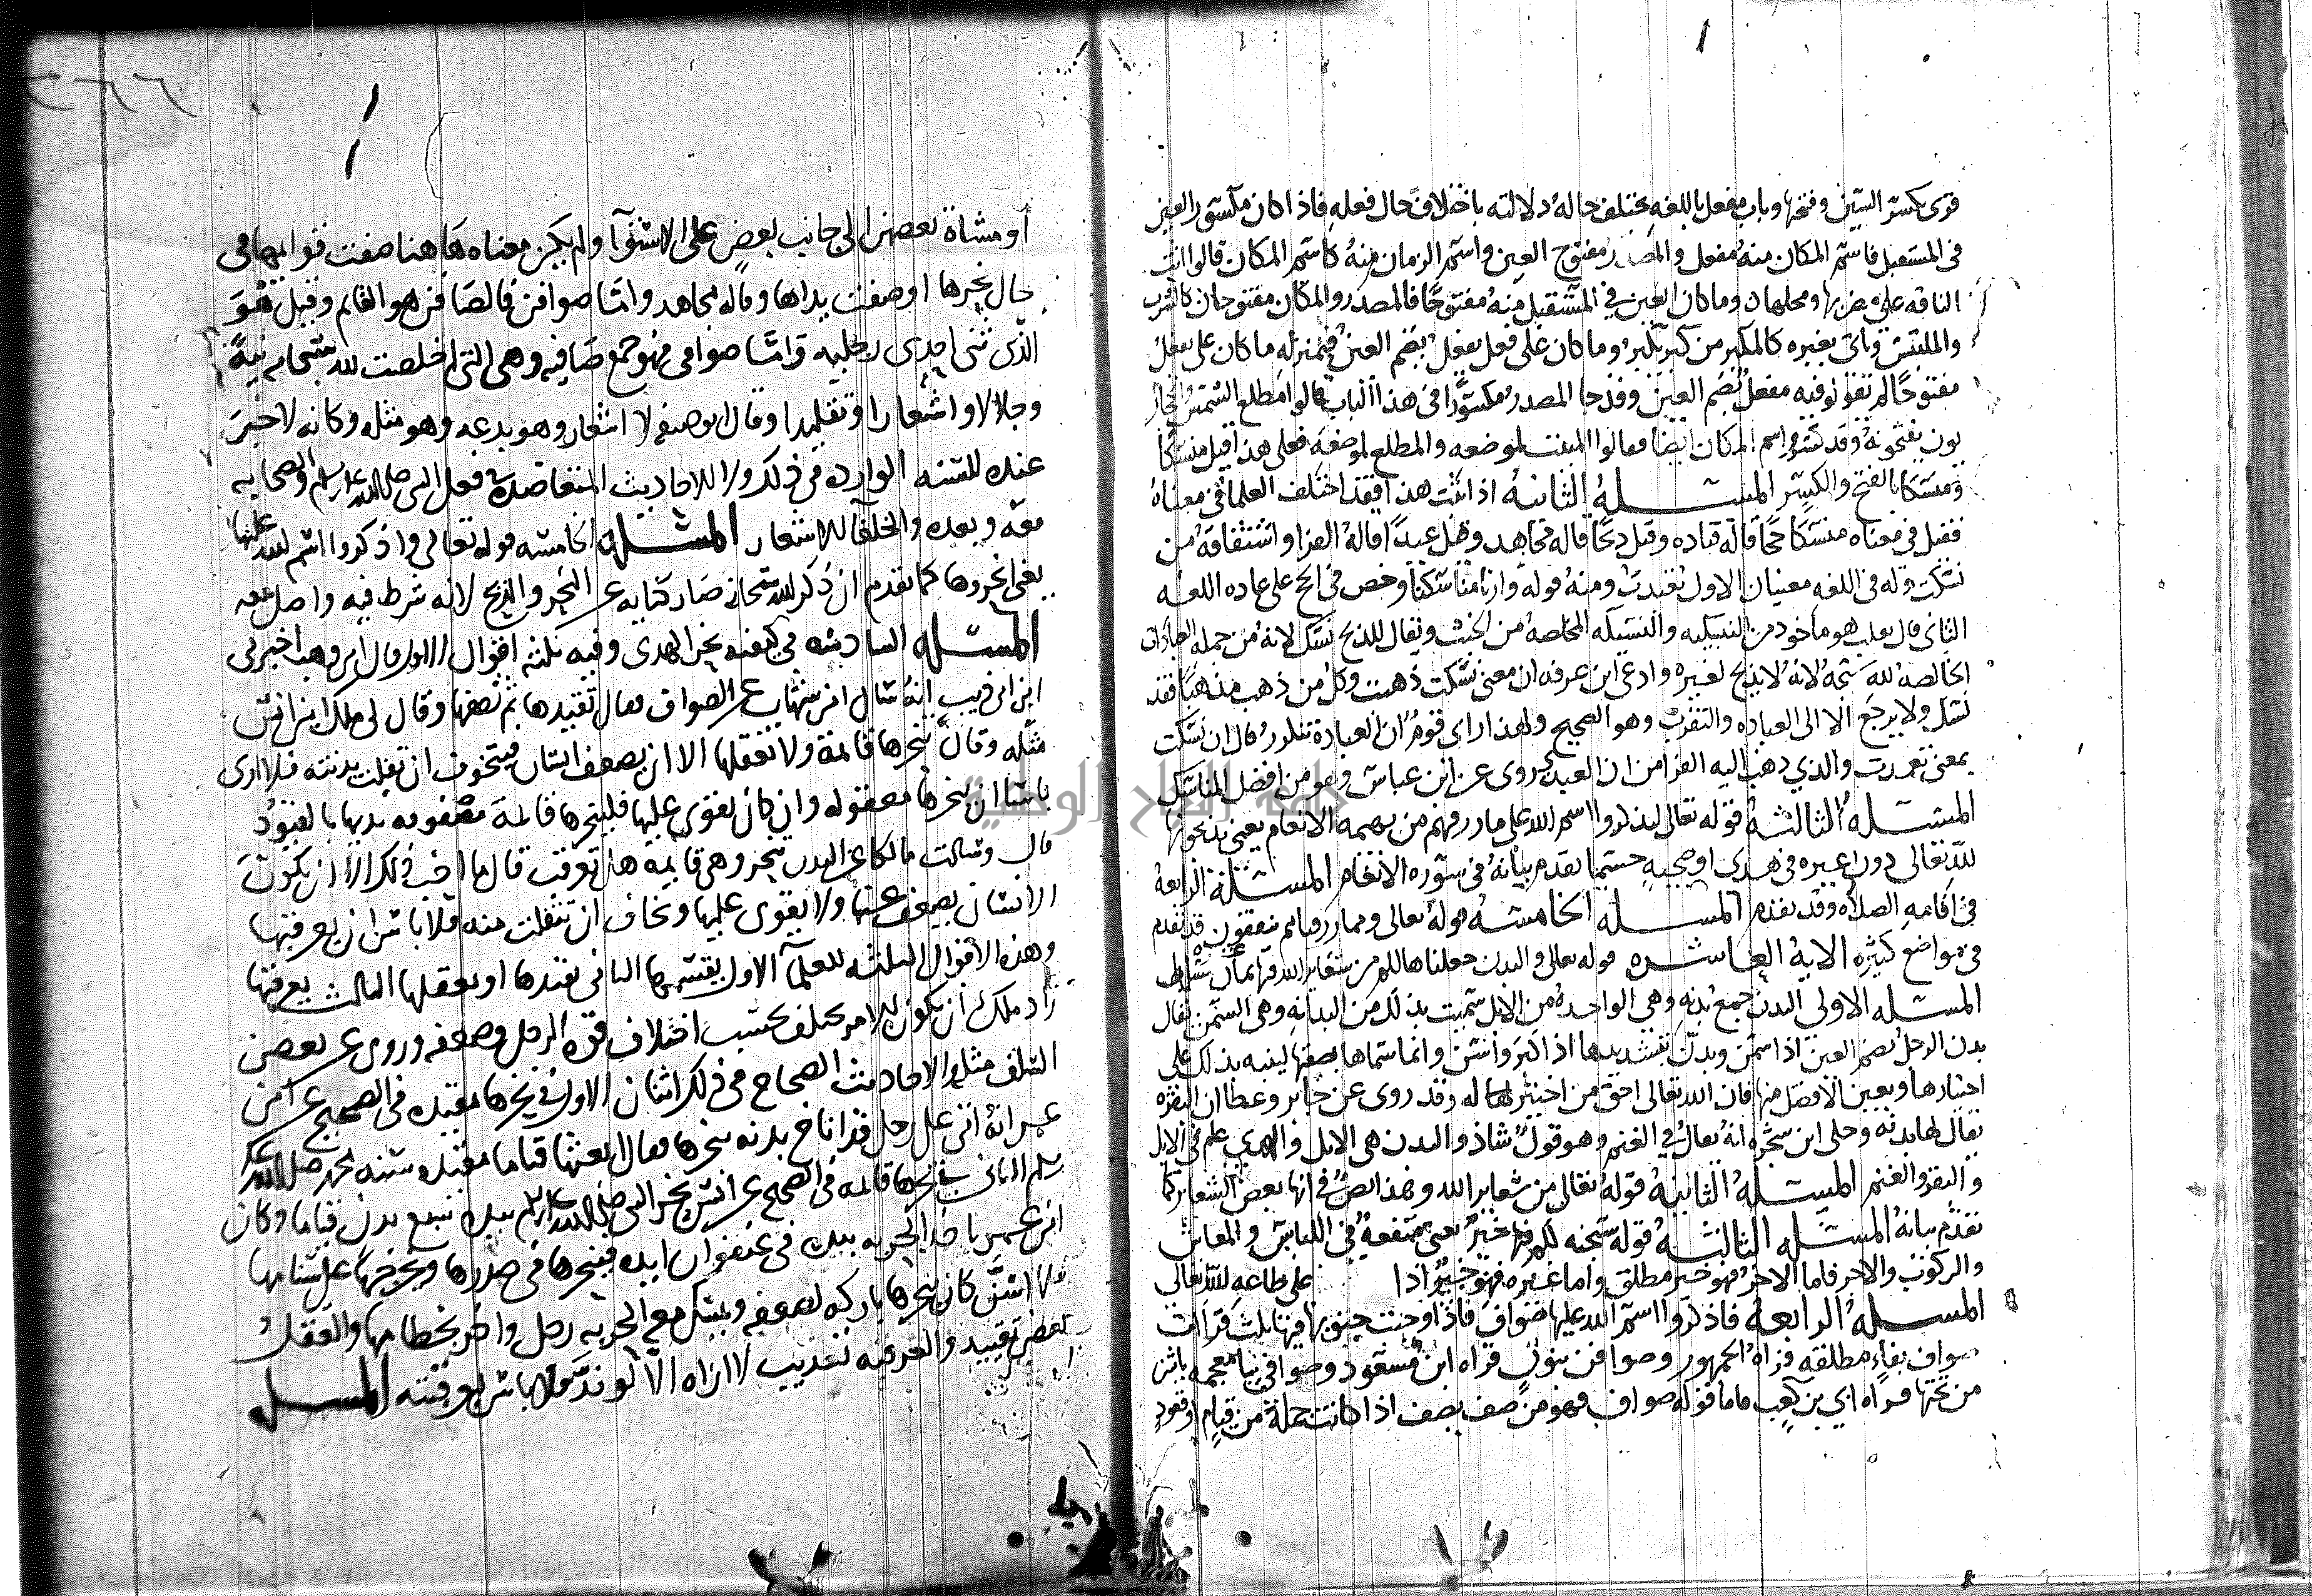 قرئ بكسر السين وفتحها وباب مفعل باللغه يختلف حاله دلالته باختلاف حال فعله فاذا كان مكسور العين
في المستقبل فاسم المكان منه مفعل والمصدر مفتوح العين واسم الزمان منه كاسم المكان قالوا اتت
الناقه على مضربها ومحلبها وما كان العين في المستقبل منه مفتوحا فالمصدر والمكان مفتوحان كالمشرب
والملبس وياتي بغيره كالمكبر من كبر يكبر وما كان على فعل يفعل بضم العين فبمنزله ما كان على يفعل
مفتوحا لم يقولوا فيه مفعل بضم العين وقد جا المصدر مكسورا في هذا الباب قالوا مطلع الشمس
يفتحونه وقد كسروا اسم المكان ايضا فقالوا المنبت لموضعه والمطلع لموضعه فعلى هذا قيل منسكا
ومنسكا بالفتح والكسر المسئله الثانيه اذا ثبت هذا فقد اختلف العلما في معناه
فقيل في معناه منسكا حجا قاله قتاده وقيل ذبحا قاله مجاهد وقيل عيدا قاله الفرا واشتقاقه من
نسكت وله في اللغه معنيان الاول تعبدت ومنه قوله وارنا مناسكنا وخص في الحج على عاده اللغه
الثاني قال ثعلب هو ماخوذ من النسيكه والنسيكه المخلصه من الخبث ويقال للذبح نسك لانه من جمله العبادات
الخالصه لله سبحنه لانه لا يذبح لغيره وادعى ابن عرفه ان معنى نسكت ذهبت وكل من ذهب مذهبا فقد
نسك ولا يرجع الا الى العباده والتقرب وهو الصحيح ولهذا راى قوم ان العبادة تتكرر قال ان نسكت
بمعنى تعهدت والذي ذهب اليه الفرا من ان العيد روي عن ابن عباس وهو من افضل المناسك
المسئله الثالثه قوله تعالى ليذكروا اسم الله على ما رزقهم من بهيمه الانعام يعني يذبحونها
لله تعالى دون غيره في هدي او ضحيه حسبما تقدم بيانه في سورة الانعام المسئلة الرابعة
في اقامه الصلاه وقد تقدم المسئله الخامسه قوله تعالى ومما رزقناهم ينفقون قد تقدم
في مواضع كثيره الايه العاشره قوله تعالى والبدن جعلناها لكم من شعاير الله فيها ثمان مسايل
المسئله الاولى البدن جمع بدنه وهي الواحده من الابل سميت بذلك من البدانه وهي السمن يقال
بدن الرجل بضم العين اذا سمن وبدن بتشديدها اذا كبر واسن وانما سماها بصفتها لينبه بذلك على
اختيارها وتعيين الافضل منها فان الله تعالى احق من اختير له وقد روي عن جابر وعطا ان البقره
يقال لها بدنه وحكى ابن شجره انه يقال في الغنم وهو قول شاذ والبدن هي الابل والهدي عام في الابل
والبقر والغنم المسئله الثانيه قوله تعالى من شعاير الله وهذا نص في انها بعض الشعاير كما
تقدم بيانه المسئله الثالثه قوله سبحنه لكم فيها خير يعني منفعه في اللباس والمعاش
والركوب والاجر فاما الاجر فهو خير مطلق واما غيره فهو خير اذا على طاعه لله تعالى
المسئله الرابعه فاذكروا اسم الله عليها صواف فاذا وجبت جنوبها فيها ثلث قراات
صواف بفاء مطلقه قراه الجمهور وصوافن بنون قراه ابن مسعود وصوافي بيا معجمه باثنتين
من تحتها قراه ابي بن كعب فاما قوله صواف فهو من صف يصف اذا كانت جملة من قيام او قعود
او مشاة بعضها الى جانب بعض على الاستوا ولم يكن معناه هاهنا صفت قوايمها في
حال نحرها او صفت يداها وقاله مجاهد واما صوافن فالصافن هو القايم وقيل هو
الذي ثنى احدى رجليه واما صوافي فهو جمع صافيه وهي التي اخلصت لله سبحانه نية
وجلالا واشعارا وتقليدا وقال ابو حنيفه لا اشعار وهو بدعه وهو مثله وكانه لا خبر
عنده للسنه الوارده في ذلك ولا للاحاديث المتعاضده فعل النبي صلى الله عليه وسلم والصحابه
معه وبعده والخلفا للاشعار المسئله الخامسه قوله تعالى فاذكروا اسم الله عليها
يعني انحروها كما تقدم ان ذكر الله سبحانه صار كنايه عن النحر والذبح لانه شرط فيه واصل معه
المسئله السادسه في كيفيه نحر الهدي وفيه ثلثه اقوال الاول قال ابن وهب اخبرني
ابن ابي ذيب انه سال ابن شهاب عن الصواف فقال تقيدها ثم تصفها وقال لي ملك ابن انس
مثله وقال ينحرها قائمة ولا يعقلها الا ان يضعف انسان فيتخوف ان تفلت بدنته فلا ارى
باسا ان ينحرها معقوله وان كان يقوى عليها فلينحرها قائمة مصفوفه يديها بالقيود
قال وسالت مالكا عن البدن تنحر وهي قايمه هل تعرقب قال ما احب ذلك الا ان يكون
الانسان يضعف عنها ولا يقوى عليها ويخاف ان تنفلت منه فلا باس ان يعرقبها
وهذه الاقوال الثلثه للعلما الاول يقيمها الثاني يقيدها او يعقلها الثالث يعرقبها
زاد ملك ان يكون الامر يختلف بحسب اختلاف قوه الرجل وضعفه وروي عن بعض
السلف مثله والاحاديث الصحاح في ذلك اثنان الاول في نحرها مقيده في الصحيح عن ابن
عمر انه اتى على رجل قد اناخ بدنه ينحرها فقال ابعثها قياما مقيده سنه محمد صلى الله عليه
وسلم الثاني في نحرها قايمه في الصحيح عن انس نحر النبي صلى الله عليه وسلم بيده سبع بدن قياما وكان
ابن عمر ياخذ الحربه بيده في عنفوان ايده فينحرها في صدرها ويخرجها على سنامها
فلما اسن كان ينحرها باركه لضعفه ويمسك معه الحربه رجل واخر بخطامها والعقل
بعض تقييد والعرقبه تعذيب لا اراه الا لو ند فلا باس بعرقبته المسئله